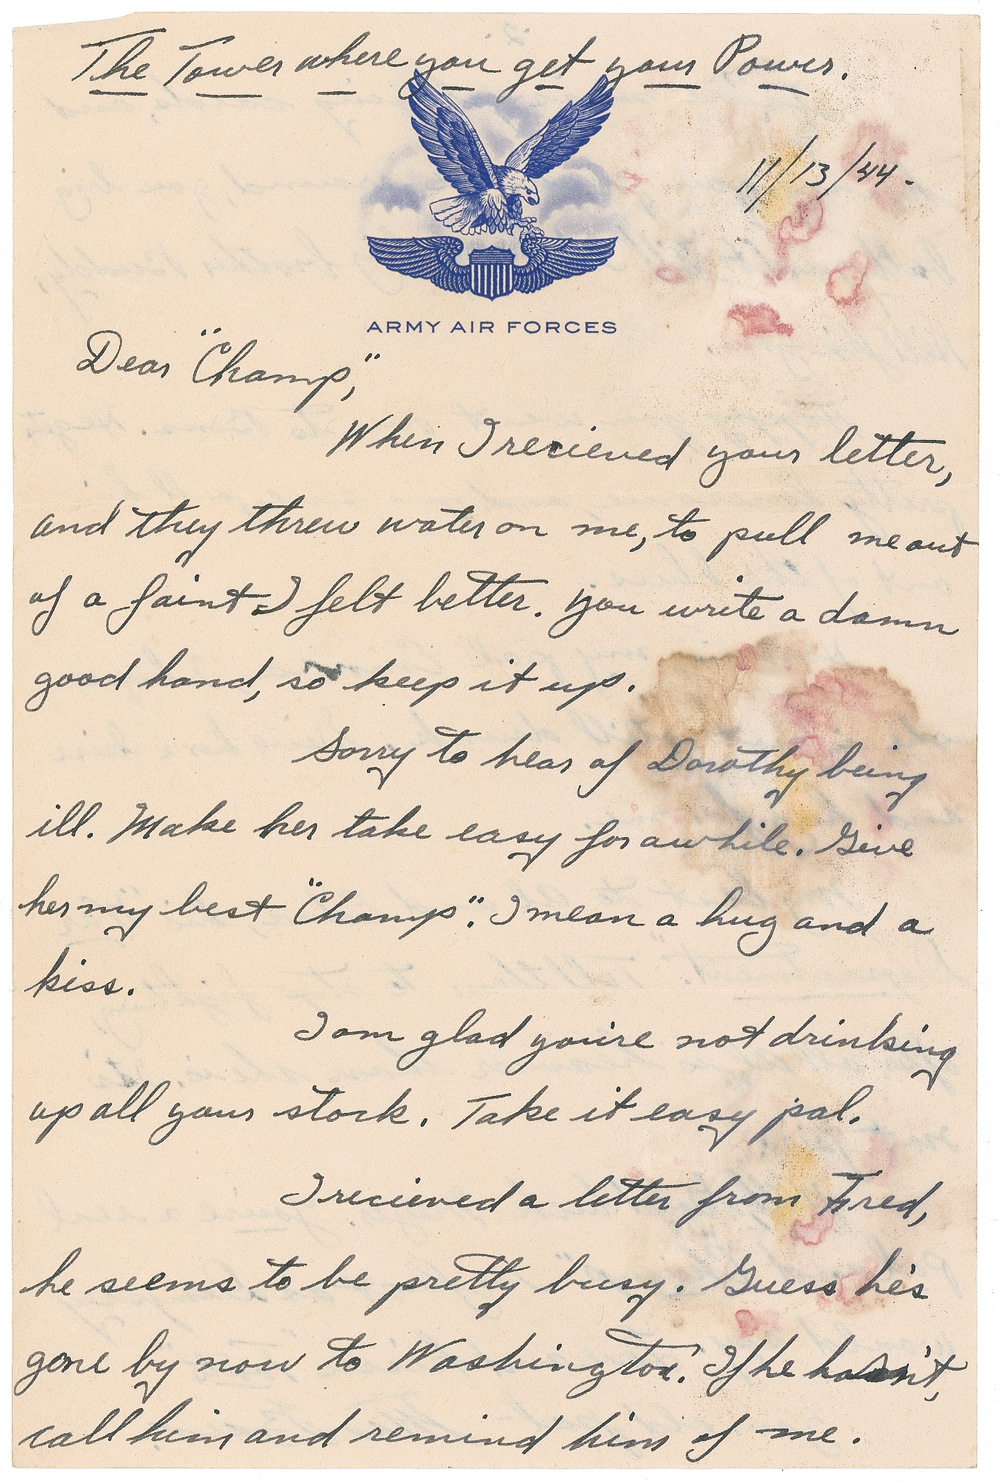 The Tower where you get your Power.
11/13/44.
ARMY AIR FORCES
Dear "Champ,"
When I recieved your letter,
and they threw water on me, to pull me out
of a faint I felt better. You write a damn
good hand, so keep it up.
Sorry to hear of Dorothy being
ill. Make her take easy for awhile. Give
her my best "Champ". I mean a hug and a
kiss.
I am glad you're not drinking
up all your stock. Take it easy pal.
I recieved a letter from Fred,
he seems to be pretty busy. Guess he's
gone by now to Washington. If he hasn't,
call him and remind him of me.